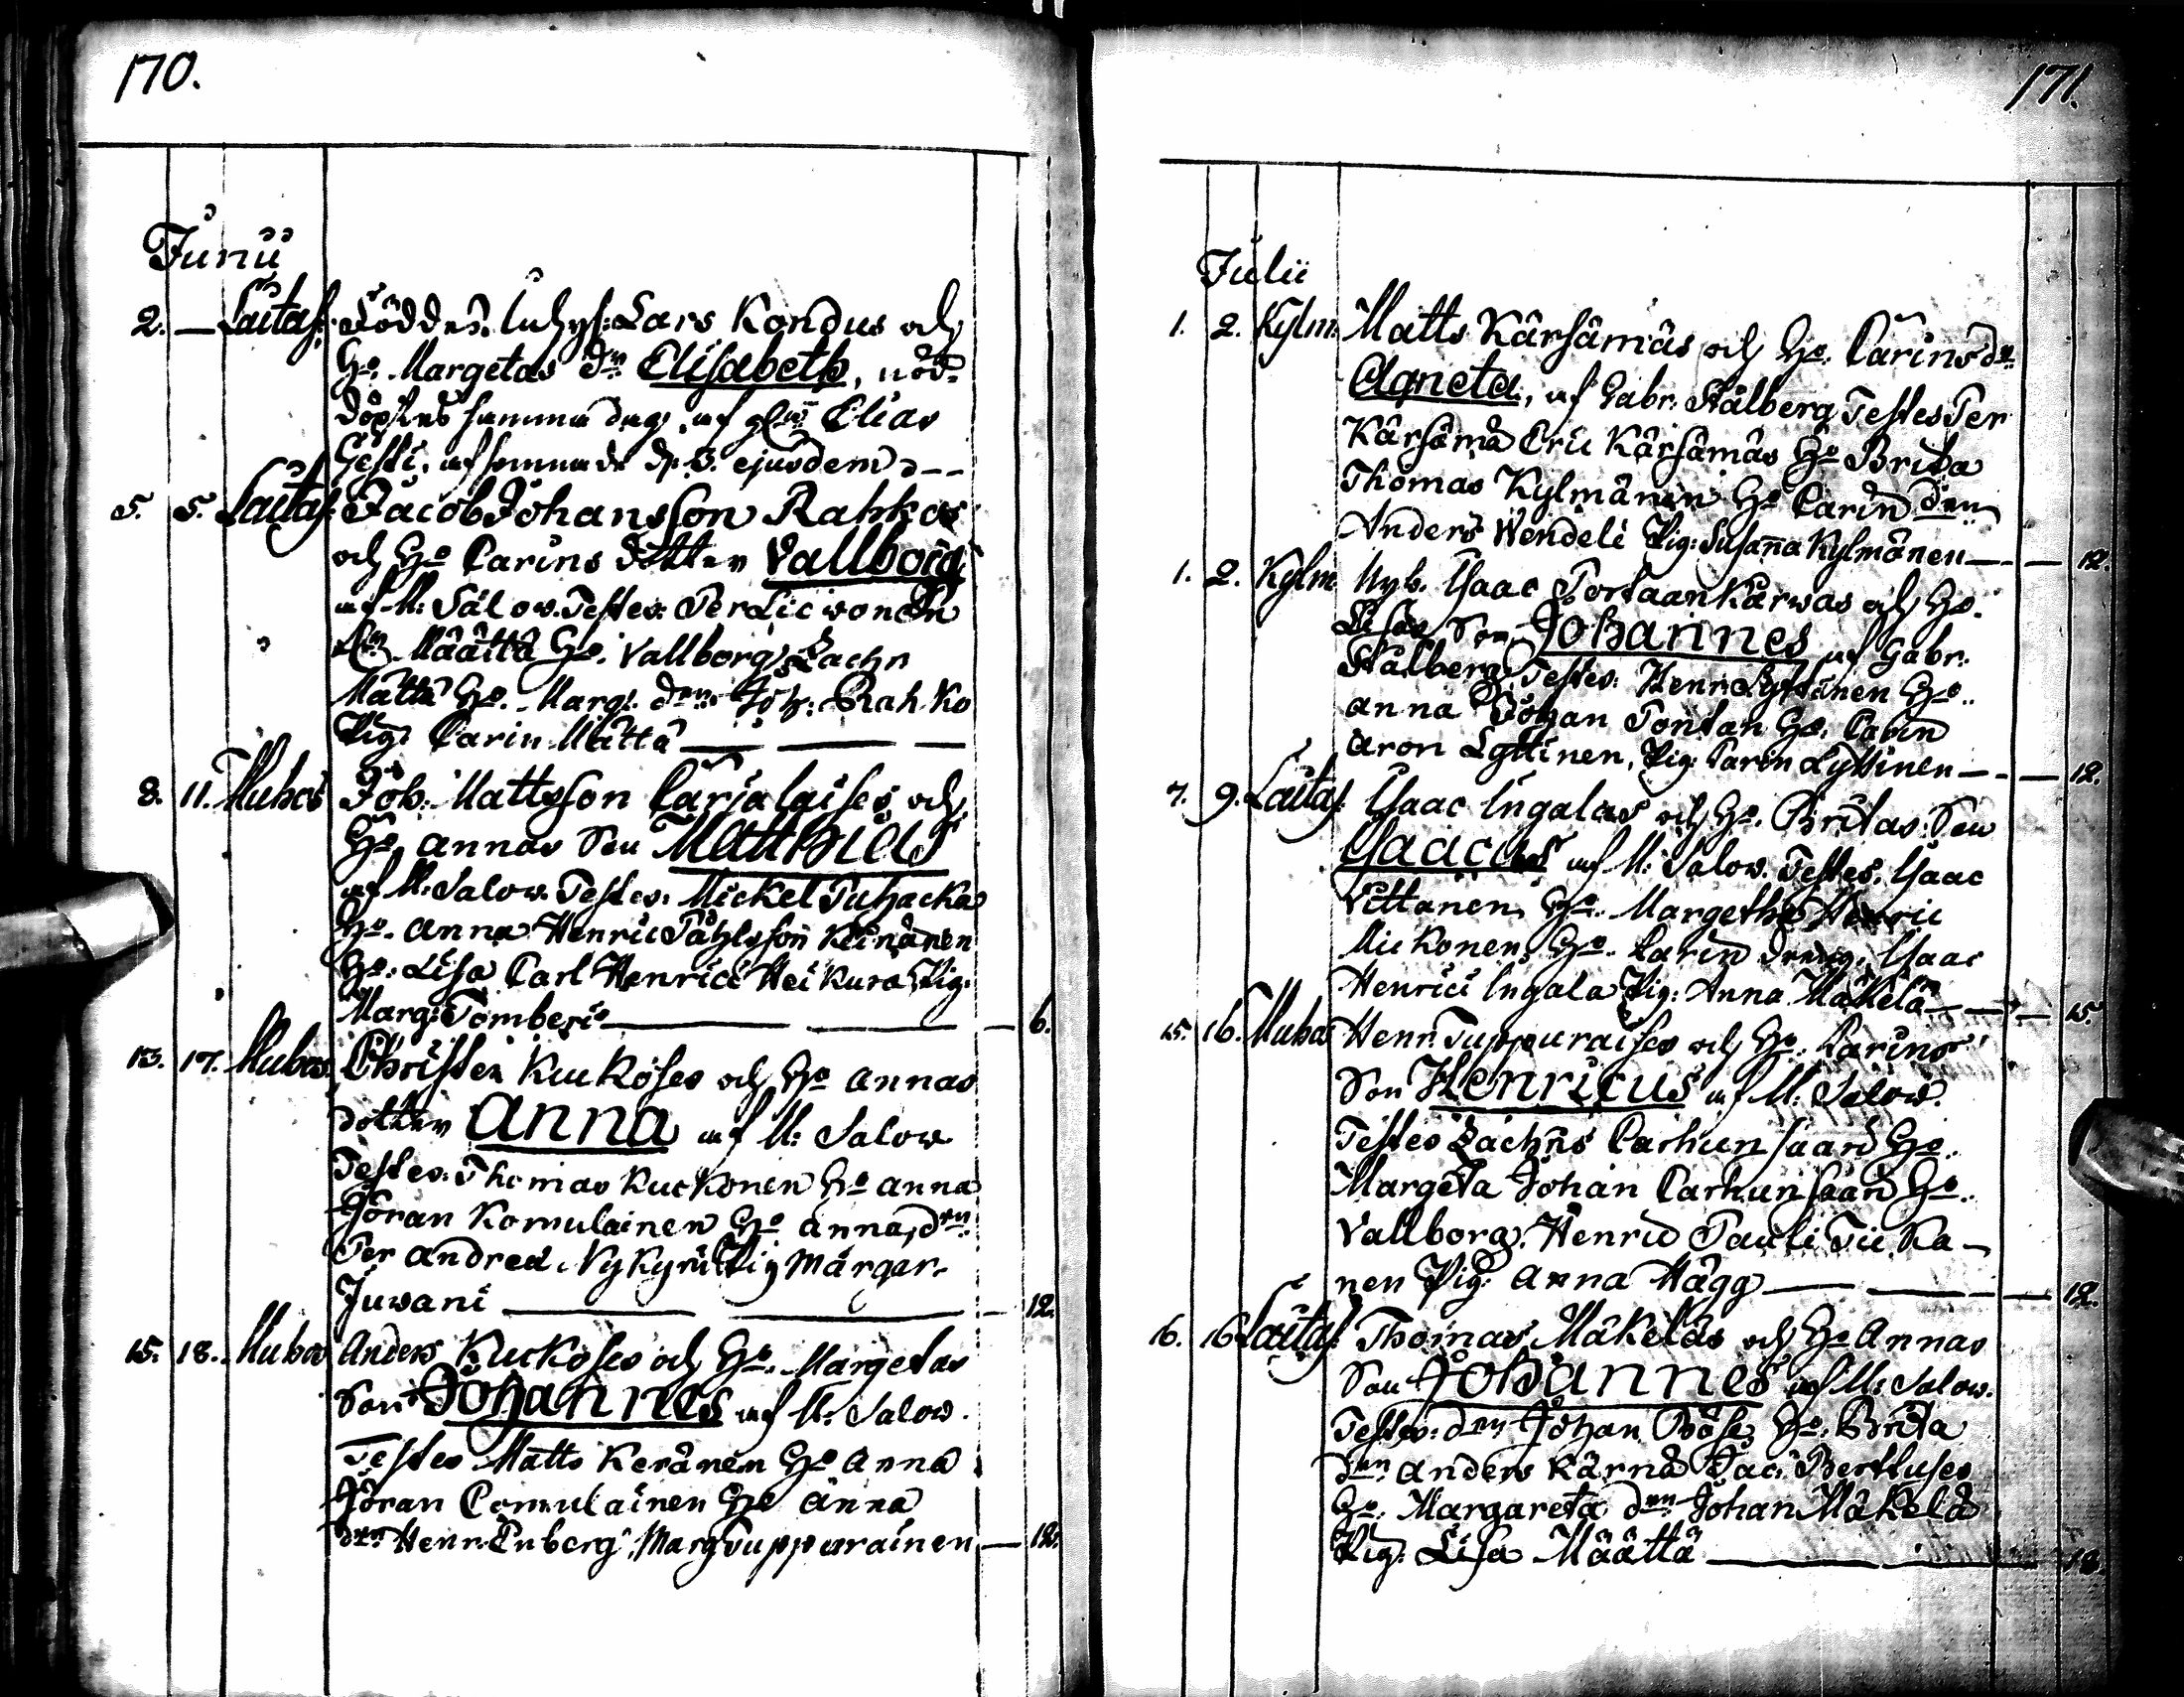 170.
Junii
2. — Laitas. Föddes Inhys: Lars Kondus och
Ho. Margetas dr Elisabeth, nöd-
döptes samma dag, af Elias
Gesti, af samma ds. d. 3. ejusdem ---
5. 5. Laitas. Jacob Johansson Rahkos
och Ho Carins dotter Vallborg
af M: Salov. Testes: Per Licwonen
Määttä Ho. Vallborg Zachr
Mättä Ho. Marg. drn. Joh: Rahko
Pig. Carin Mättä — — —
8. 11. Muhos Joh: Mattsson Carjalaises och
Ho. Annas Son Matthias
af M: Salow. Testes: Mickel Tuhacka
Ho. Anna Henric Påhlsson Keinänen
Ho. Lisa Carl Henrici Heikura Pig.
Marg: Tomberi — — — 6.
13. 17. Muhos Christer Kuckoses och Ho Annas
dotter Anna af M: Salow
Testes. Thomas Kuckonen Ho Anna
Jöran Komulainen Ho Anna, drn.
Per Andrea Nykyri Pig Marger.
Juwani — — — 12.
15. 18. Muhos Anders Kuckoses och Ho. Margetas
Son Johannes af M: Salow.
Testes Matts Keränen Ho Anna
Jöran Comulainen Ho Anna
drn Henr. Enberg, Marg Tuppurainen — 12.
171.
Julii
1. 2. Kylm. Matts Kärsämäs och Ho. Carins dr.
Agneta, af Gabr: Stålberg Testes Per
Kärsämä Eric Kärsämäs Ho Brita
Thomas Kylmänen Ho Carin drn
Anders Wendeli Pig: Susanna Kylmänen — - — 12.
1. 2. Kylm Nyb. Isaac Portaankårwas och Ho.
Lisas Son Johannes af Gabr.
Stålberg Testes: Henr. Lyttinen Ho.
Anna Johan Pontan Ho. Carin
Aron Lyttinen, Pig: Carin Lyttinen — - — 12.
7. 9. Laitas. Isaac Ingalas och Ho. Britas Son
Isaacus af M: Salow. Testes. Isaac
Vittanen Ho. Margetha Henric
Mickonen Ho. Carin dreng. Isaac
Henrici Ingala Pig: Anna Mäkelä — — — 15.
15. 16. Muhos Henr. Tuppuraises och Ho. Carins
Son Henricus af M: Salow.
Testes Zachris Carhunsaari Ho.
Margeta Johan Carhunsaari Ho.
Vallborg. Henric Pauli Tiika-
nen Pig: Anna Hägg — — — 12.
16. 16. Laitas. Thomas Mäkeläs och Ho Annas
Son Johannes af M: Salow.
Testes: drn Johan Ho. Brita
drn Anders Kärnä Jac. Bertluses
Ho. Margareta drn Johan Mäkelä
Pig. Lisa Määttä — — 12.